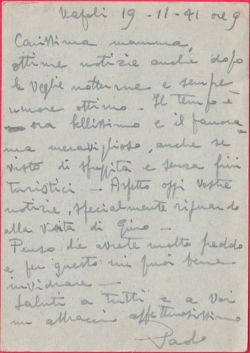 Napoli 19-11-41 ore 9
Carissima mamma,
ottime notizie anche dopo
le veglie notturne e sempre
umore ottimo - Il tempo è
ora bellissimo e il panora-
ma meraviglioso, anche se
visto di sfuggita e senza fini
turistici - Aspetto oggi vostre
notizie, specialmente riguardo
alla visita di Gino -
Penso che avrete molto freddo
e per questo mi puoi bene
invidiare -
Saluti a tutti e a Voi
un abbraccio affettuosissimo
Paolo